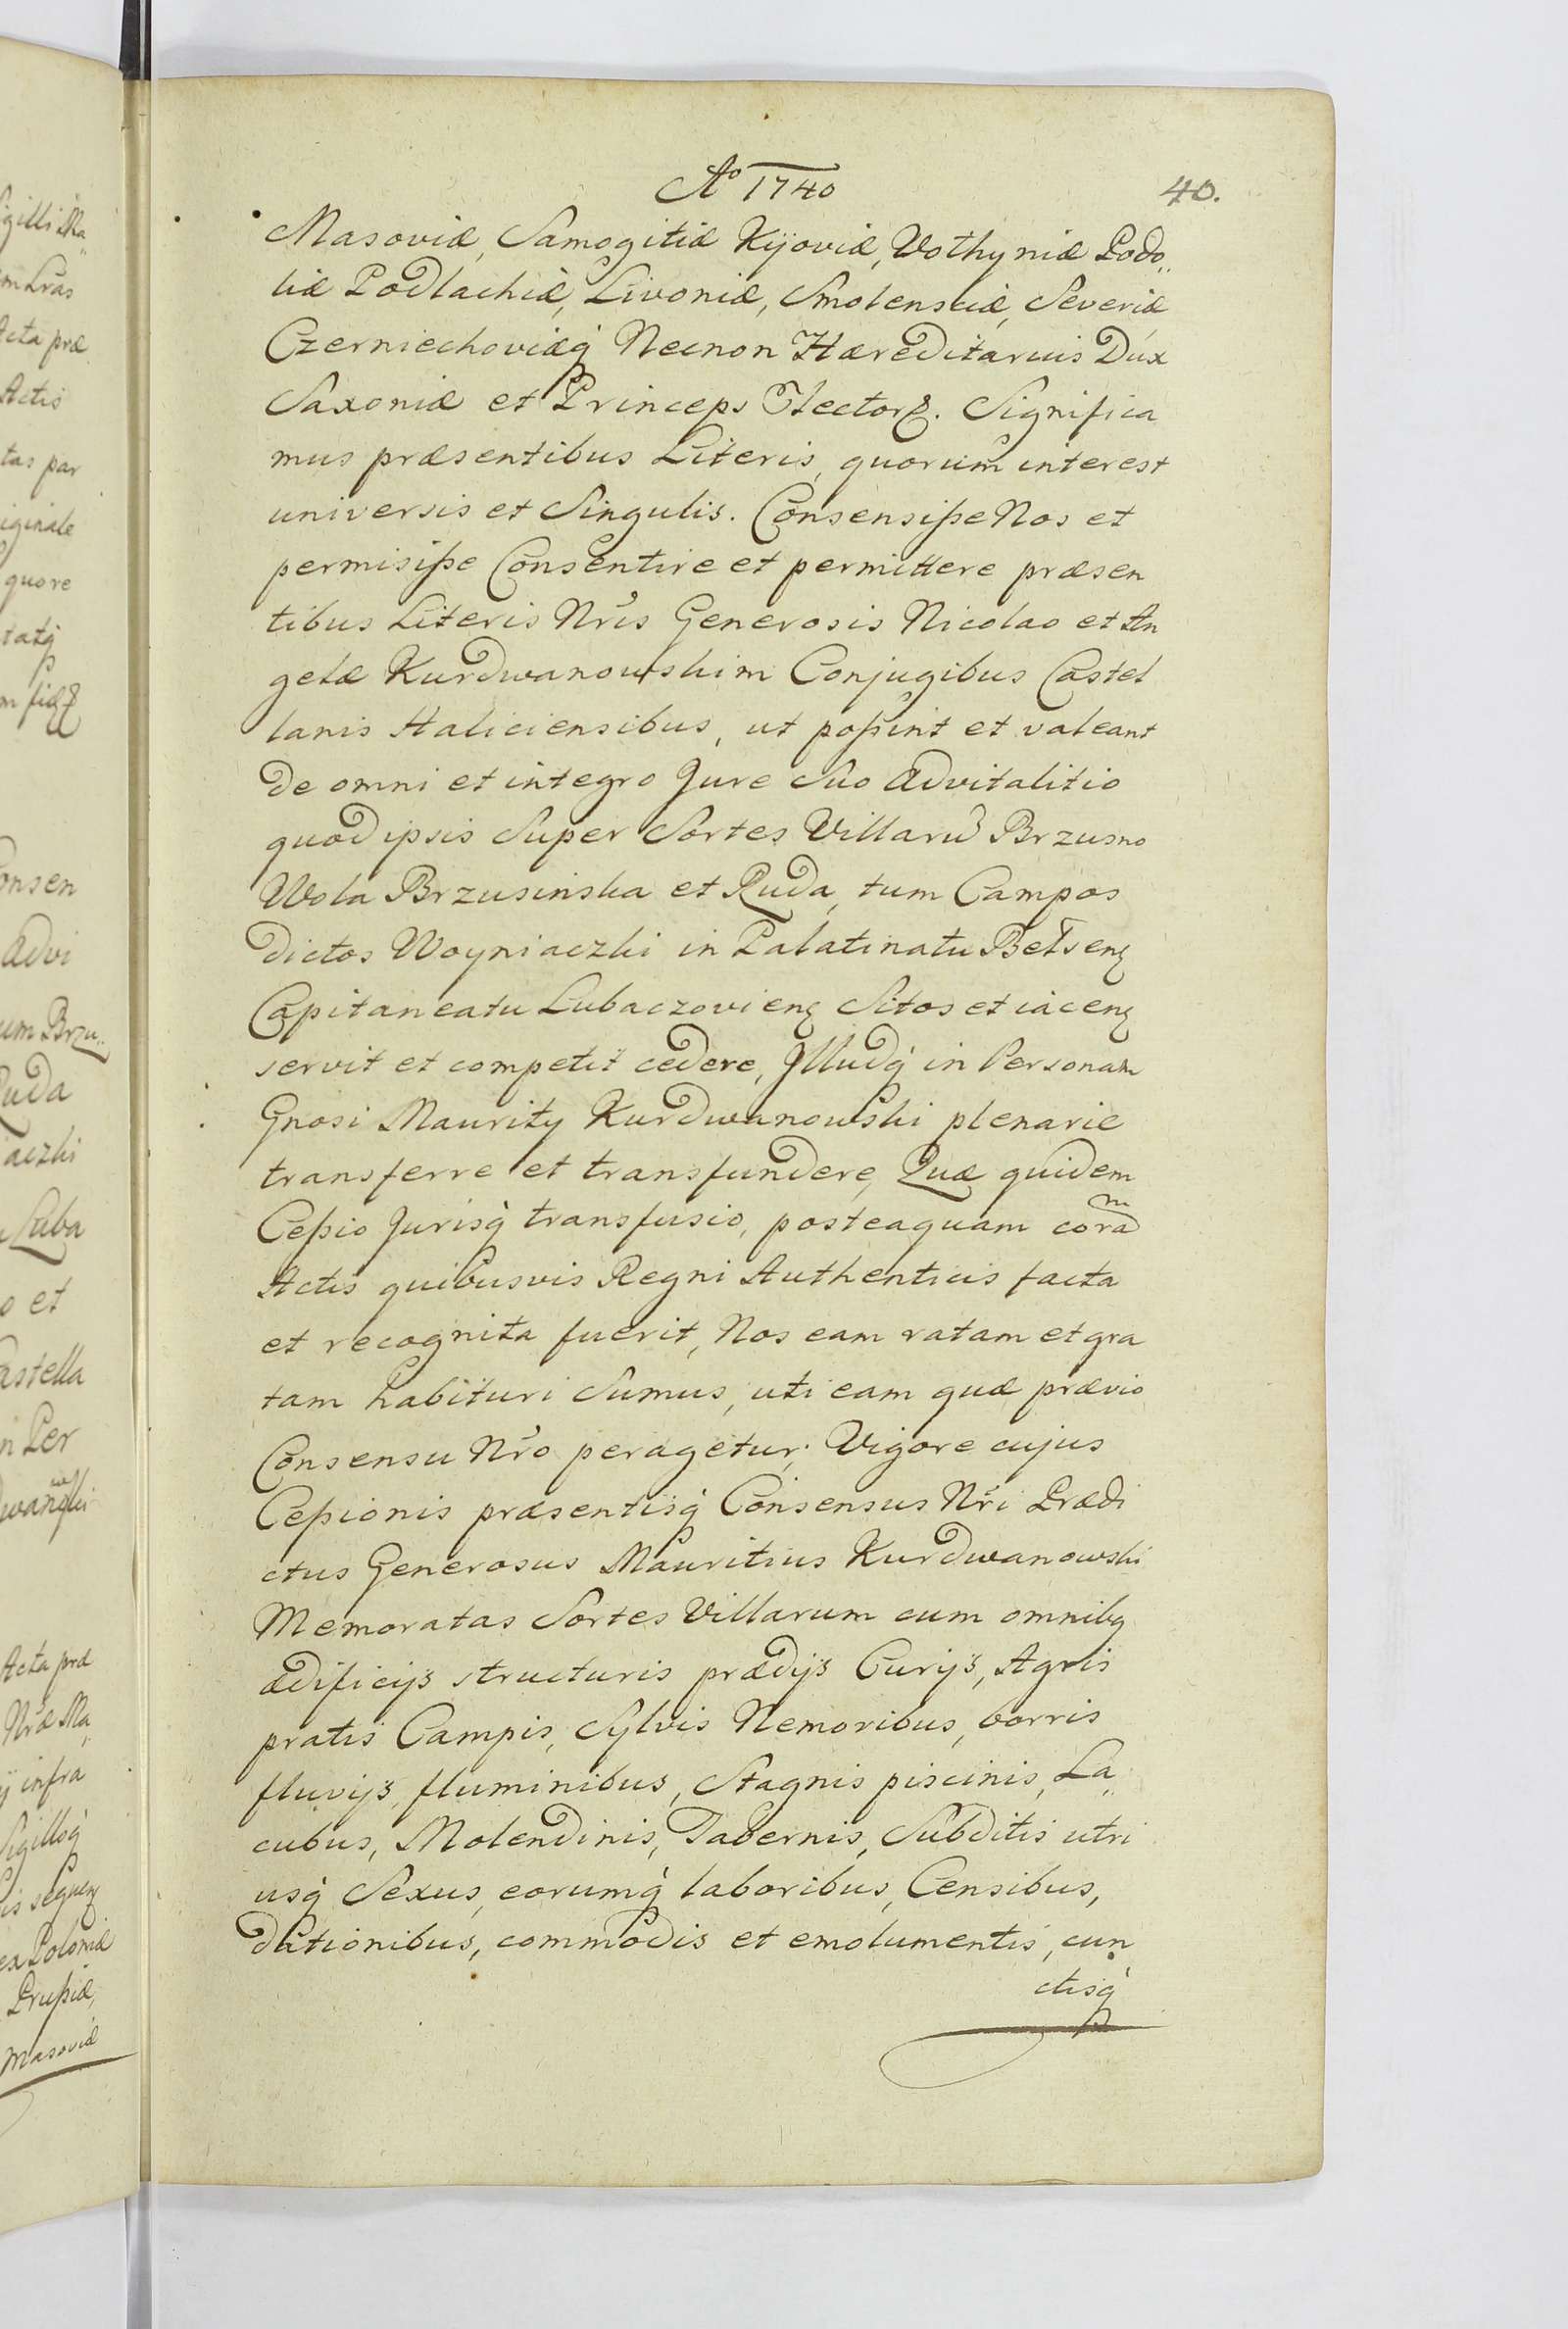 Ao 1740
40.
Masoviæ, Samogitiæ Kijoviæ, Wolhyniæ Podo„
liæ Podlachiæ, Livoniæ, Smolensciæ, Severiæ
Czerniechoviæq́ Necnon Hæreditarius Dux
Saxoniæ et Princeps Elector. Significa
mus præsentibus Literis, quorum interest
universis et Singulis. Consensiße Nos et
permisiße Consentire et permittere præsen
tibus Literis Nr̃is Generosis Nicolao et An
gelæ Kurdwanowskim Conjugibus Castel
lanis Haliciensibus, ut poßint et valeant
de omni et integro Jure Suo Advitalitio
quod ipsis Super Sortes Villarũ Brzusno
Wola Brzusinska et Ruda, tum Campos
dictos Woyniaczki in Palatinatu Belzenꝫ
Capitaneatu Lubaczovienꝫ Sitos et iacenꝫ
servit et competit cedere, Jlludq́ in Personam
Gnosi Maurity Kurdwanowski plenarie
transferre et transfundere, Quæ quidem
Ceßio Jurisq́ transfusio, posteaquam coram
Actis quibusvis Regni Authenticis facta
et recognita fuerit, Nos eam ratam et gra
tam habituri Sumus, uti eam quæ prævio
Consensu Nr̃o peragetur; Vigore cujus
Ceßionis præsentisq́ Consensus Nr̃i Prædi
ctus Generosus Mauritius Kurdwanowski
Memoratas Sortes Villarum cum omnibꝫ
ædificijs structuris prædijs Curijs, Agris
pratis Campis, Sylvis Nemoribus, borris
fluvijs, fluminibus, Stagnis piscinis, La„
cubus, Molendinis, Tabernis, Subditis utri
usq́ Sexus, eorumq́ laboribus, Censibus,
dationibus, commodis et emolumentis, cun
ctisq́